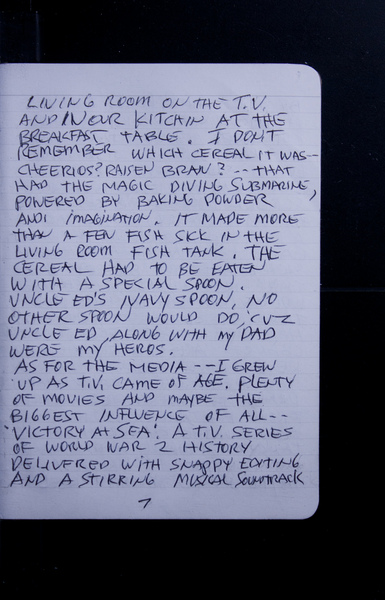 LIVING ROOM ON THE T.V.
AND IN OUR KITCHIN AT THE
BREAKFAST TABLE. I DON'T
REMEMBER WHICH CEREAL IT WAS--
CHEERIOS? RAISEN BRAN? -- THAT
HAD THE MAGIC DIVING SUBMARINE,
POWERED BY BAKING POWDER
AND IMAGINATION. IT MADE MORE
THAN A FEW FISH SICK IN THE
LIVING ROOM FISH TANK. THE
CEREAL HAD TO BE EATEN
WITH A SPECIAL SPOON.
UNCLE ED'S NAVY SPOON, NO
OTHER SPOON WOULD DO, 'CUZ
UNCLE ED, ALONG WITH MY DAD
WERE MY HEROS.
AS FOR THE MEDIA -- I GREW
UP AS T.V. CAME OF AGE. PLENTY
OF MOVIES AND MAYBE THE
BIGGEST INFLUENCE OF ALL--
'VICTORY AT SEA'. A T.V. SERIES
OF WORLD WAR 2 HISTORY
DELIVERED WITH SNAPPY EDITING
AND A STIRRING MUSICAL SOUNDTRACK
7